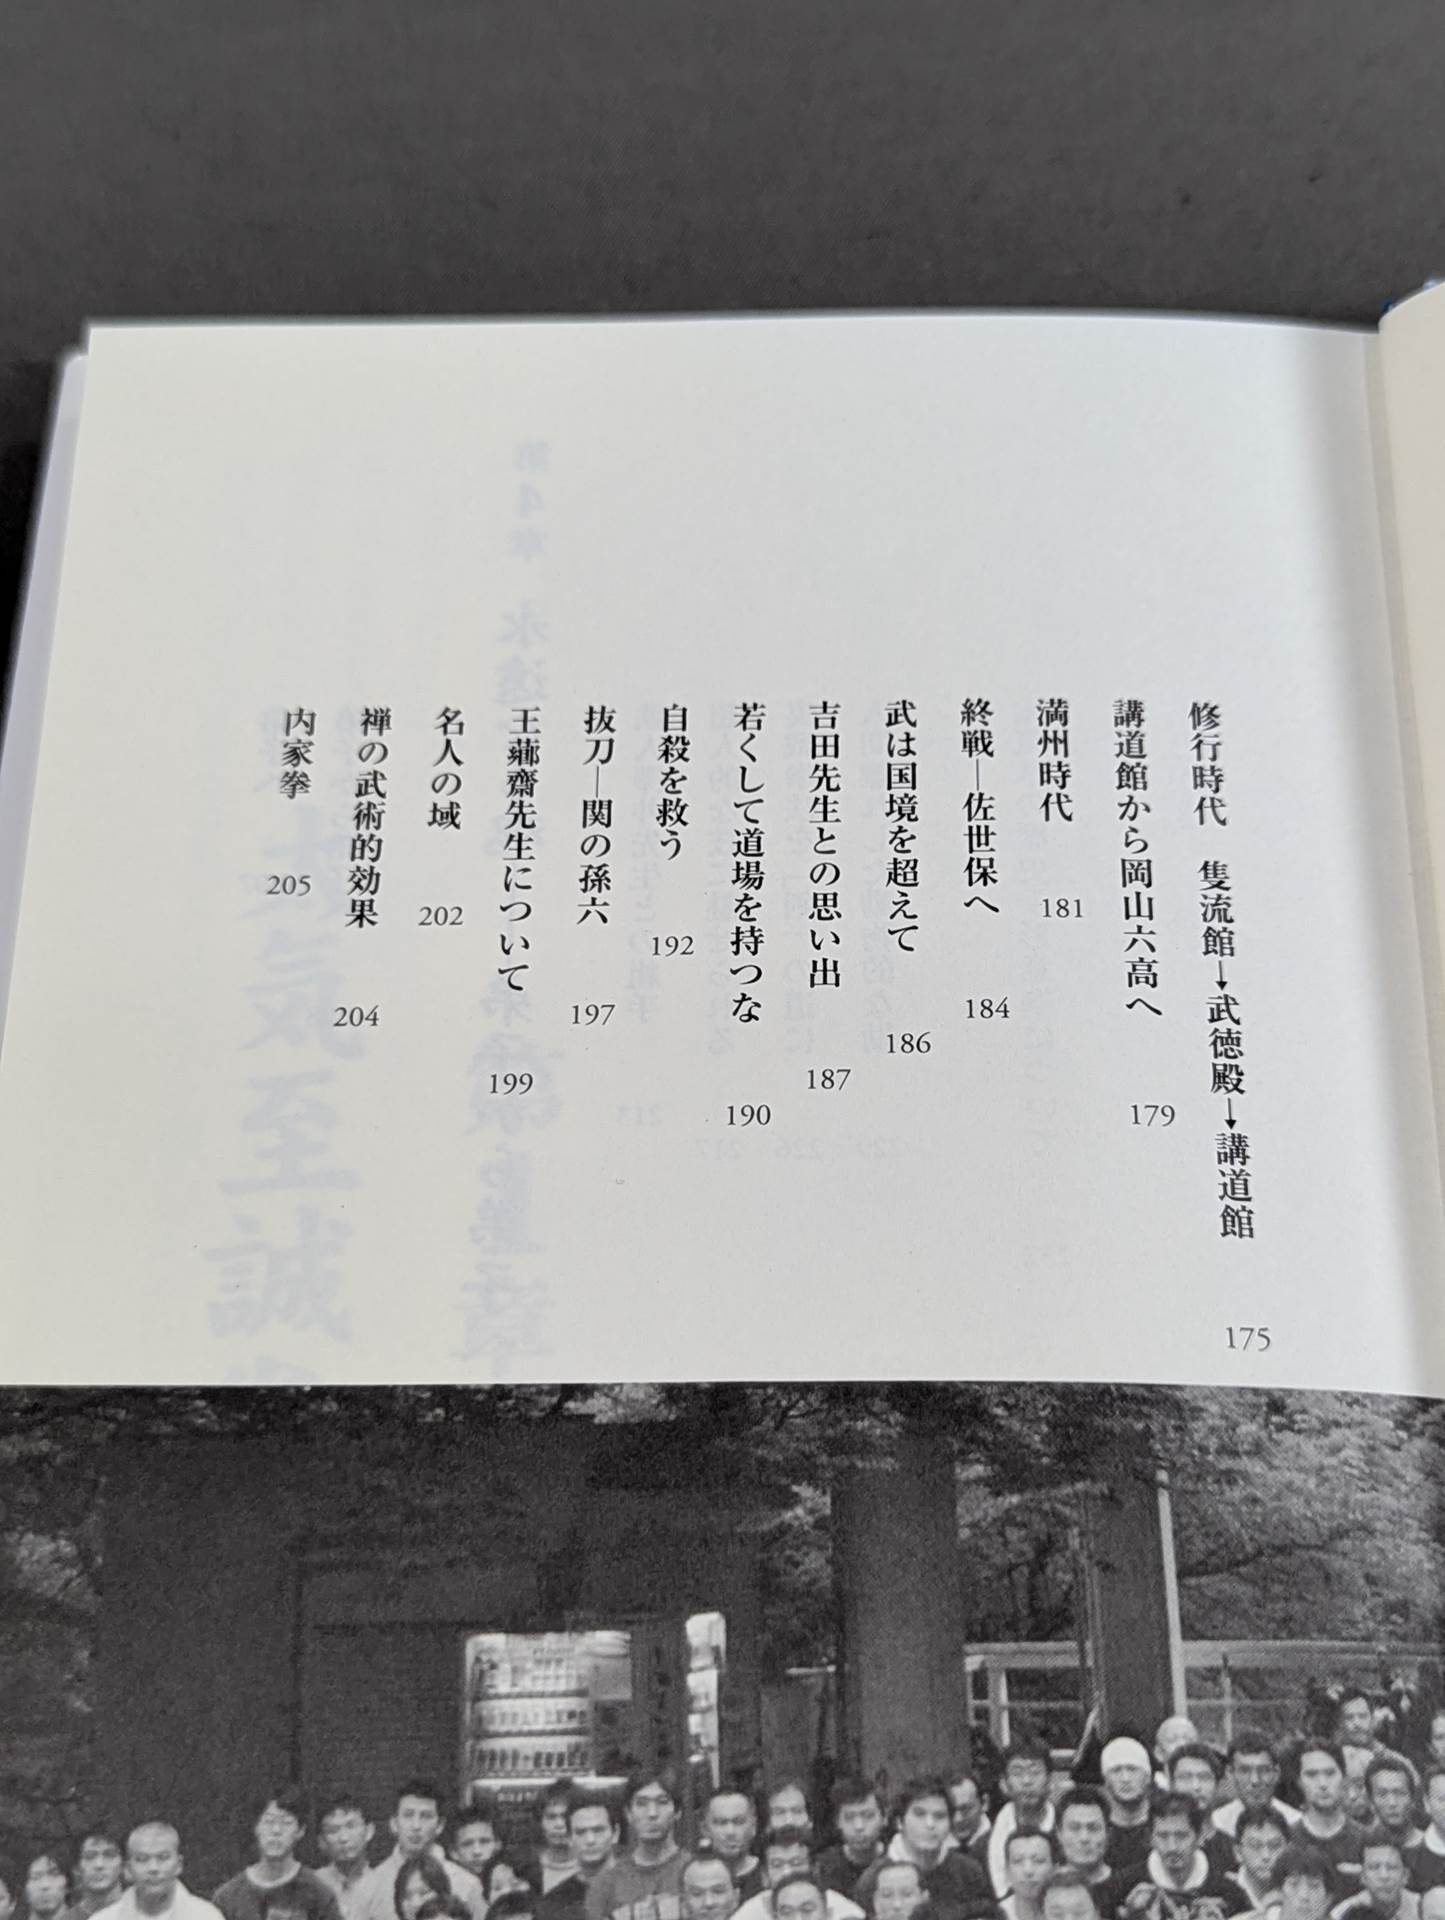 修行時代　隻流館→武徳殿→講道館 175
講道館から岡山六高へ 179
満州時代 181
終戦―佐世保へ 184
武は国境を超えて 186
吉田先生との思い出 187
若くして道場を持つな 190
自殺を救う 192
抜刀―関の孫六 197
王薌齋先生について 199
名人の域 202
禅の武術的効果 204
内家拳 205